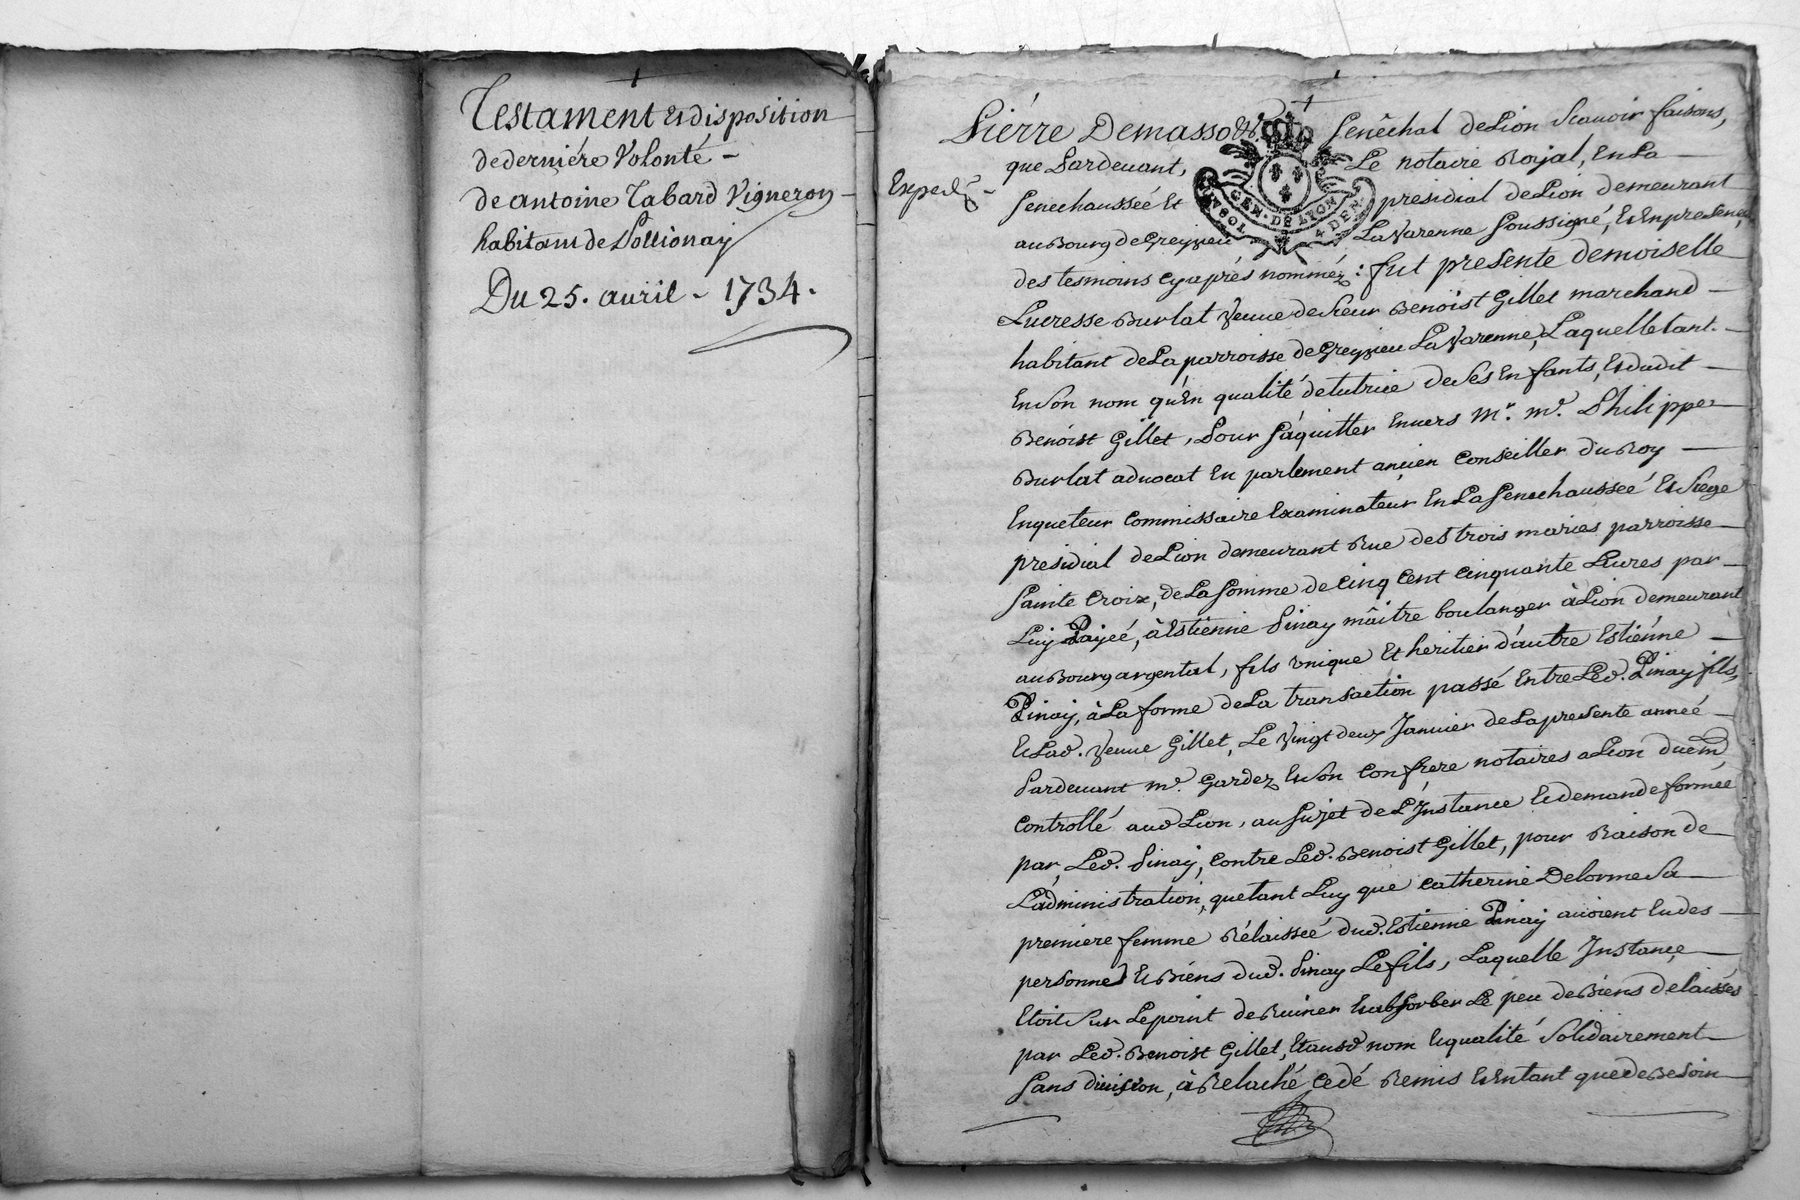 Testament et disposition
de derniére Volonté -
de antoine Tabard Vigneron -
habitant de Pollionay
Du 25. auril - 1734.
Pierre Demasso & Senêchal de Lion Scauoir faisons,
Exped.
que Pardeuant, Le notaire Royal, En La
Senechausseé Et presidial de Lion demeurant
au Bourg de Greyzieu La Varenne Soussigné, Et En presence,
TOBAV. SOL GEN. DE LYON 4 DEN.
des tesmoins cy aprés nomméz : fut presente demoiselle
Lucresse Burlat Veuue de Sieur Benoist Gillet marchand
habitant de La parroisse de Greyzieu La Varenne, Laquelle tant.
En Son nom qu'En qualité de tutrice de Ses Enfants, Et dudit
Benoist Gillet, Pour S'aquitter Enuers Mr. me. Philippe
Burlat aduocat En parlement ancien Conseiller du Roy
Enqueteur Commissaire Examinateur En La Senechausseé Et Siege
presidial de Lion demeurant Rue des trois maries parroisse
Sainte Croix, de La Somme de Cinq Cent Cinquante Liures par
Luy Payeé, à Estienne Pinay mâitre boulanger à Lion demeurant
au Bourg argental, fils Vnique Et heritier d'autre Estiénne
Pinay, à La forme de La transaction passé Entre Led. Pinay fils,
Et Lad. Veuue Gillet, Le Vingt deux Januier de La presente anneé
Pardeuant me. Gardez Et Son Confrere notaires a Lion duem.
Controllé aud Lion, au Sujet de L'Jnstance Et demande formée
par Led. Pinay, Contre Led. Benoist Gillet, pour Raison de
L'administration, que tant Luy que Catherine Delorme Sa
premiere femme Rélaisseé dud. Estienne Pinay auoient Eu des
personnes Et Biéns dud. Pinay Le fils, Laquelle Jnstance
Etoit Sur Le point de Ruiner Et absorber Le peu de Biéns delaissés
par Led. Benoist Gillet, Et ausd nom Et qualité Solidairement
Sans diuision, à Relaché Cedé Remis Et Entant que de Besoin